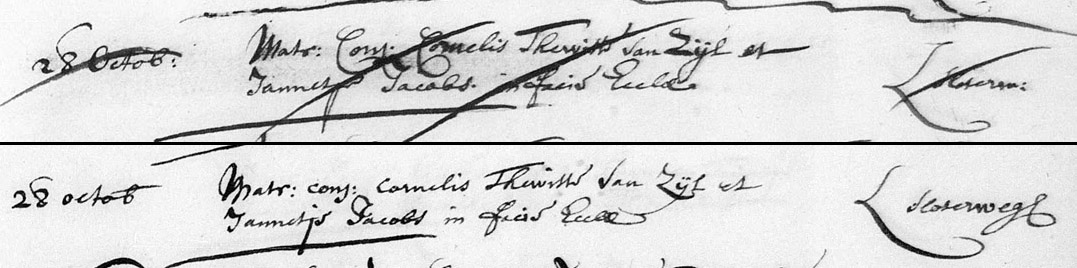 28 Octob: Matr: Conj: Cornelis Thewitts van Zijl et
Jannetje Jacobs. in facie Eccla Sloterw:
28 octob Matr: conj: Cornelis Thewitts van Zijl et
Jannetje Jacobs in facie Eccle Sloterwegh